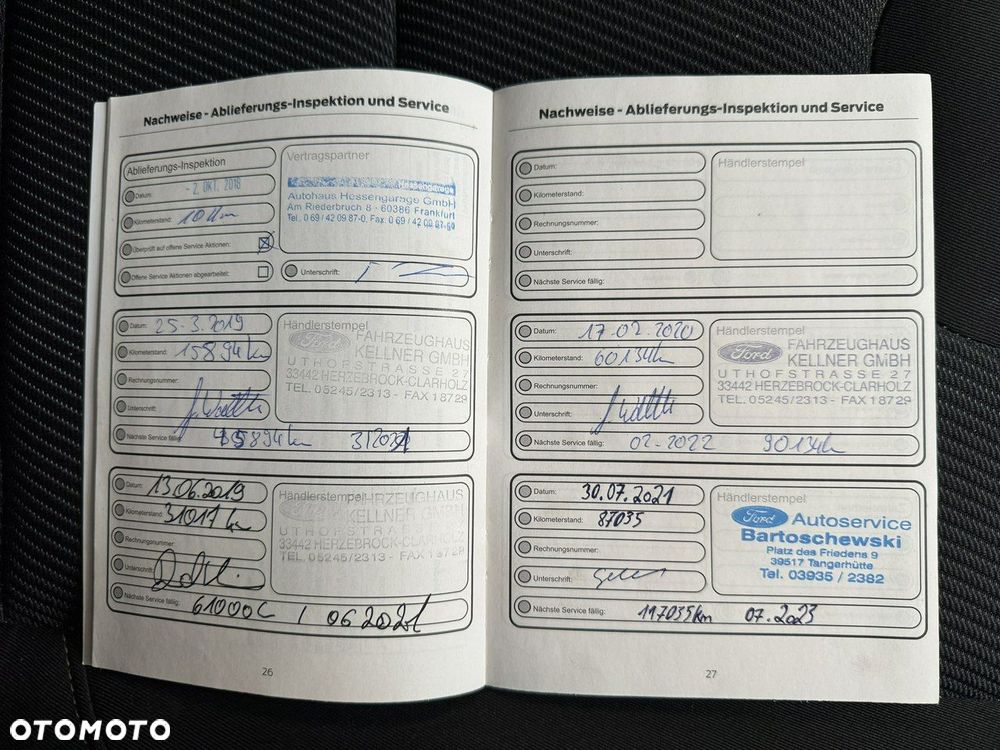 Nachweise - Ablieferungs-Inspektion und Service
Ablieferungs-Inspektion
Datum: - 2. OKT. 2018
Kilometerstand: 10 km
Überprüft auf offene Service Aktionen:
Offene Service Aktionen abgearbeitet:
Vertragspartner
Hessengarage
Autohaus Hessengarage GmbH
Am Riederbruch 8 · 60386 Frankfurt
Tel. 0 69 / 42 09 87-0, Fax 0 69 / 42 09 87-60
Unterschrift:
Datum: 25-3.2019
Kilometerstand: 15894 km
Rechnungsnummer:
Unterschrift:
Nächste Service fällig: 45894 km 3/2021
Händlerstempel
Ford FAHRZEUGHAUS
KELLNER GMBH
UTHOFSTRASSE 27
33442 HERZEBROCK-CLARHOLZ
TEL. 05245/2313 - FAX 18729
Datum: 13.06.2019
Kilometerstand: 31017 km
Rechnungsnummer:
Unterschrift:
Nächste Service fällig: 61000 / 06 2021
Händlerstempel
FAHRZEUGHAUS
KELLNER GMBH
UTHOFSTRASSE 27
33442 HERZEBROCK-CLARHOLZ
TEL. 05245/2313 - FAX 18729
26
Nachweise - Ablieferungs-Inspektion und Service
Datum:
Kilometerstand:
Rechnungsnummer:
Unterschrift:
Nächste Service fällig:
Händlerstempel
Datum: 17-02-2020
Kilometerstand: 60134 km
Rechnungsnummer:
Unterschrift:
Nächste Service fällig: 02-2022 90134 km
Händlerstempel
Ford FAHRZEUGHAUS
KELLNER GMBH
UTHOFSTRASSE 27
33442 HERZEBROCK-CLARHOLZ
TEL. 05245/2313 - FAX 18729
Datum: 30.07.2021
Kilometerstand: 87035
Rechnungsnummer:
Unterschrift:
Nächste Service fällig: 117035 km 07.2023
Händlerstempel
Ford Autoservice
Bartoschewski
Platz des Friedens 9
39517 Tangerhütte
Tel. 03935 / 2382
27
OTOMOTO